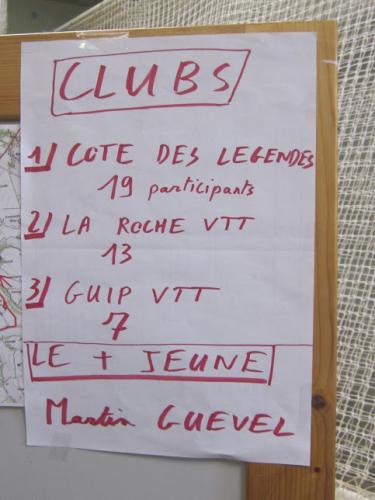 CLUBS
1/ COTE DES LEGENDES
19 participants
2/ LA ROCHE VTT
13
3/ GUIP VTT
7
LE + JEUNE
Martin GUEVEL